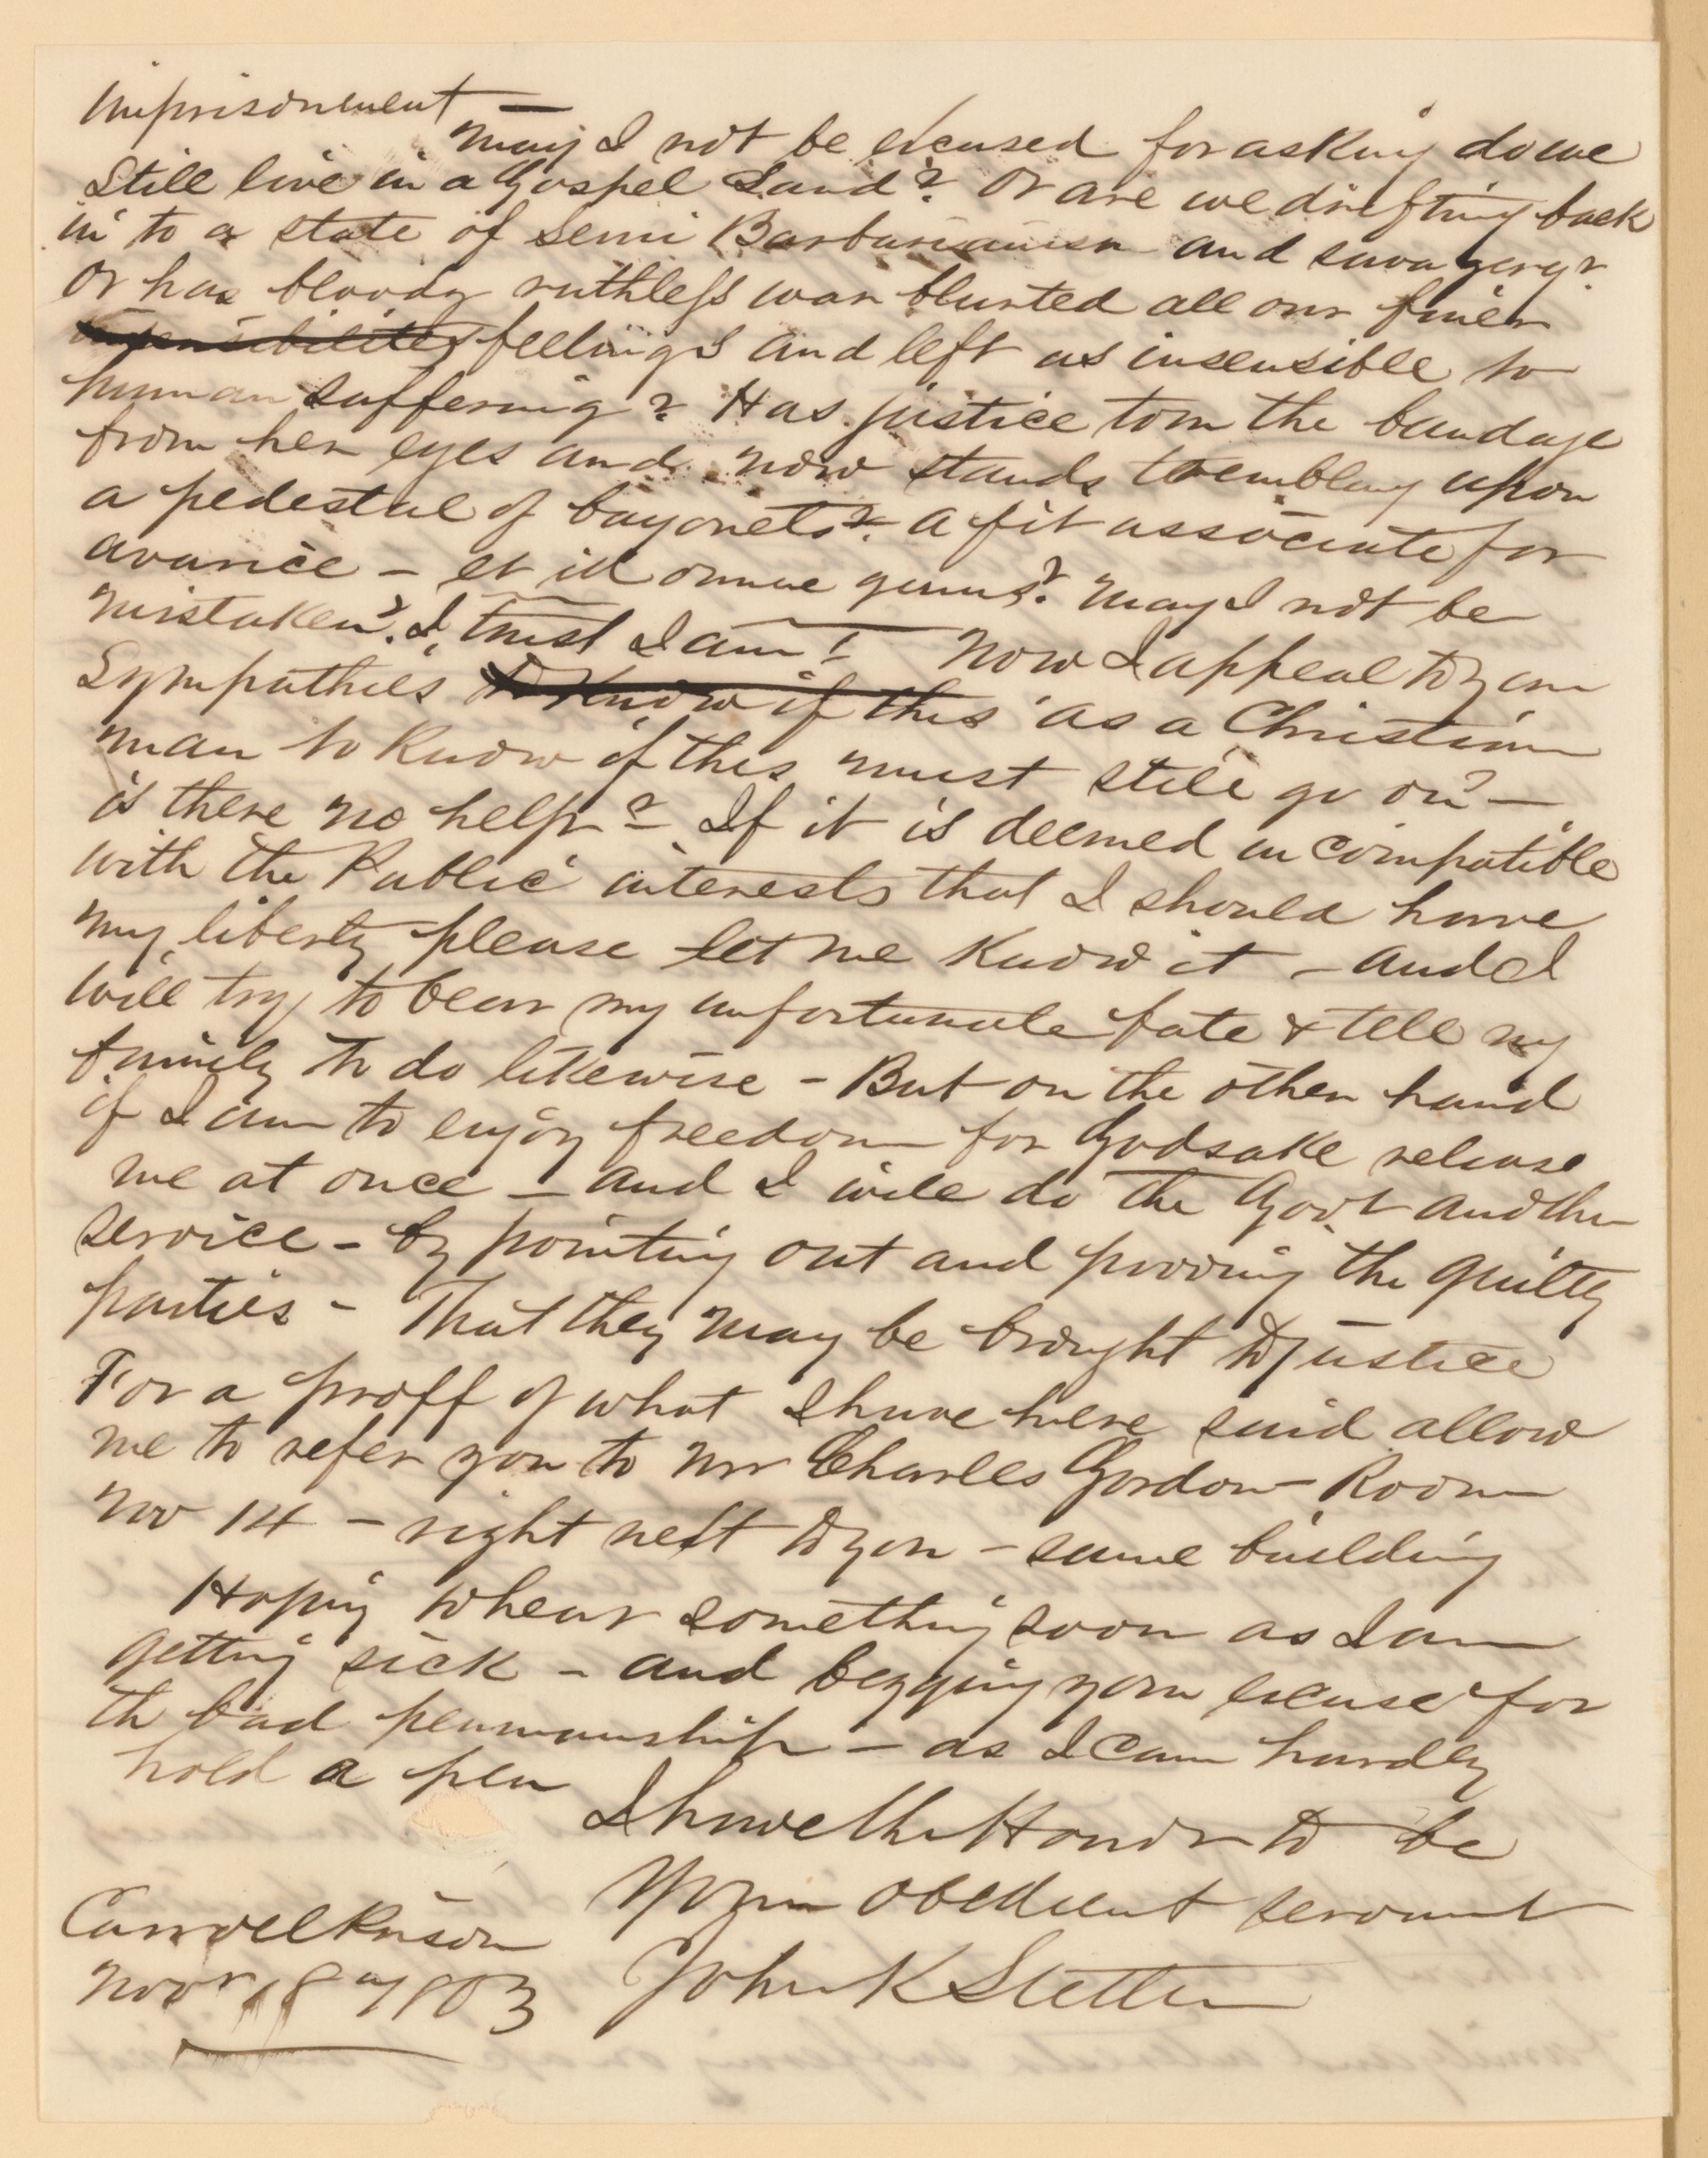 imprisonment —
may I not be excused for asking do we
still live in a Gospel Land? Or are we drifting back
in to a state of Semi Barbarianism and savagery?
Or has bloody ruthless war blunted all our finer
sensibilities feelings and left us insensible to
human suffering? Has justice torn the bandage
from her eyes and now stands trembling upon
a pedestal of bayonets? a fit associate for
avarice – et id omne genus? may I not be
mistaken? I trust I am! Now I appeal to your
Sympathies to know if this as a Christian
man to know if this must still go on? —
is there no help? – If it is deemed incompatible
with the Public interests that I should have
my liberty please let me know it – and I
will try to bear my unfortunate fate & tell my
family to do likewise – But on the other hand
if I am to enjoy freedom for Godsake release
me at once – and I will do the Govt another
service – by pointing out and prooving the guilty
parties – That they may be brought to justice
For a proff of what I have here said allow
me to refer you to Mr Charles Gordon Room
No 14 – right next to you – same building
Hoping to hear something soon as I am
getting sick – and begging your excuse for
th bad penmanship – as I can hardly
hold a pen
I have the Honor to be
Your obedient servant
Carroll Prison
Novr 18th 1863
John K Stetler